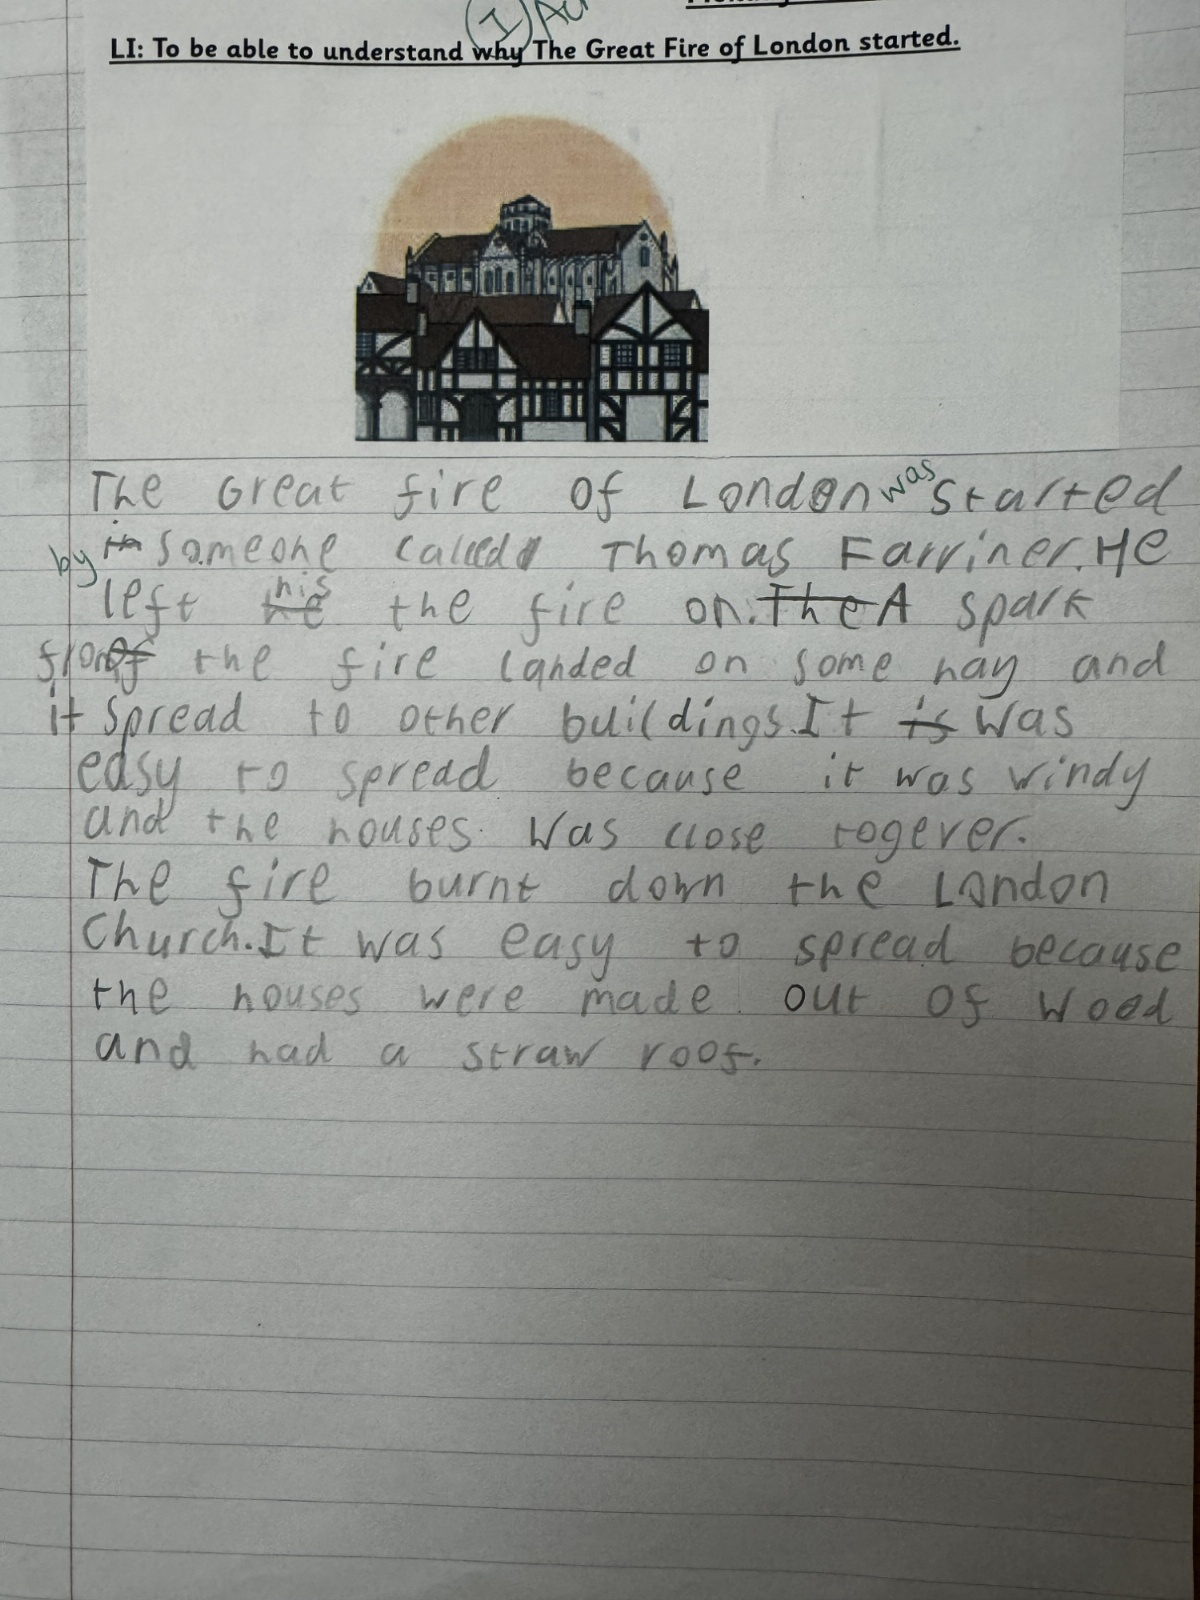 LI: To be able to understand why The Great Fire of London started.
The Great fire of London was started
by in someone called Thomas Farriner. He
left he his the fire on. The A spark
from of the fire landed on some hay and
it spread to other buildings. It is was
easy to spread because it was windy
and the houses. Was close togever.
The fire burnt down the London
Church. It was easy to spread because
the houses were made out of wood
and had a straw roof.